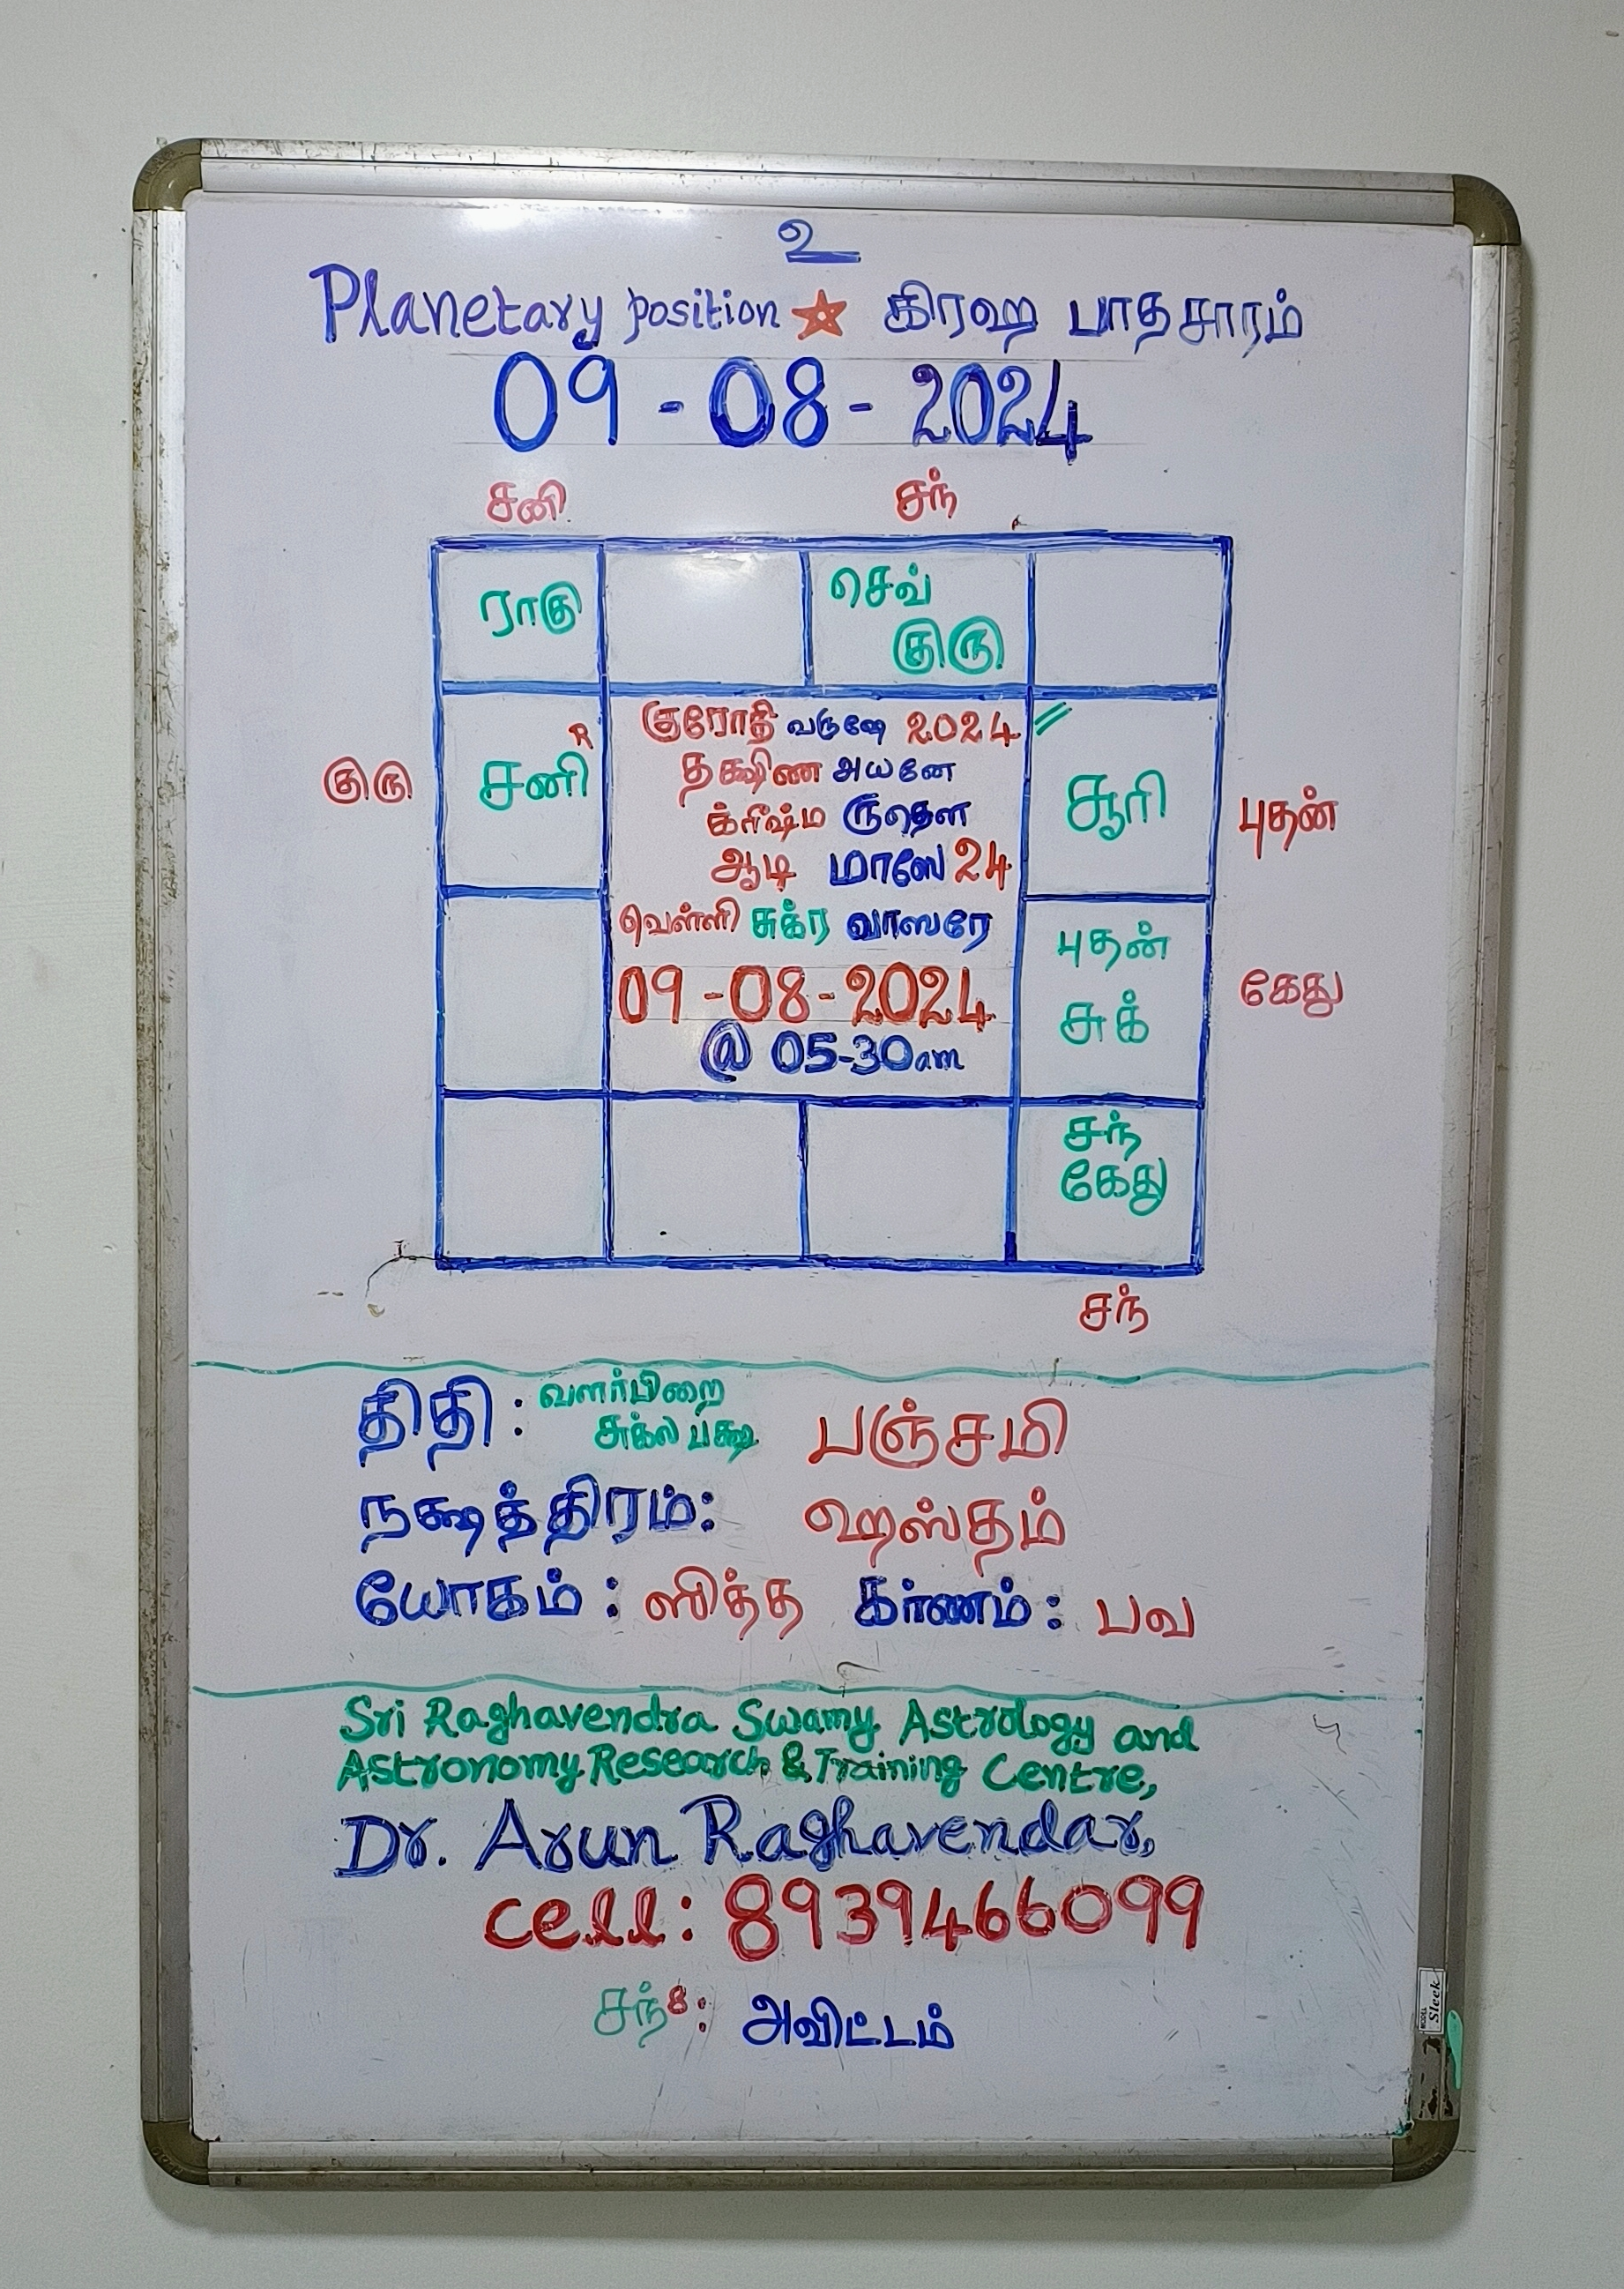 உ
Planetary position ☆ கிரஹ பாதசாரம்
09-08-2024
சனி சந்
ராகு செவ்
குரு
குரோதி வருஷே 2024
R
குரு சனி தக்ஷிண அயனே சூரி புதன்
க்ரீஷ்ம ருதௌ
ஆடி மாஸே 24
வெள்ளி சுக்ர வாஸரே புதன்
09-08-2024 சுக் கேது
@ 05-30am
சந்
கேது
சந்
திதி: வளர்பிறை
சுக்ல பக்ஷ பஞ்சமி
நக்ஷத்திரம்: ஹஸ்தம்
யோகம்: ஸித்த கர்ணம்: பவ
Sri Raghavendra Swamy Astrology and
Astronomy Research & Training Centre,
Dr. Arun Raghavendar,
cell: 8939466099
சந்8: அவிட்டம்
MODEL
Sleek